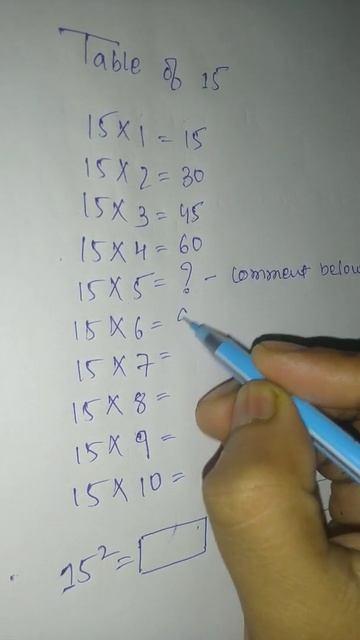 Table of 15
15 X 1 = 15
15 X 2 = 30
15 X 3 = 45
15 X 4 = 60
15 X 5 = ? - comment below
15 X 6 =
15 X 7 =
15 X 8 =
15 X 9 =
15 X 10 =
15² =